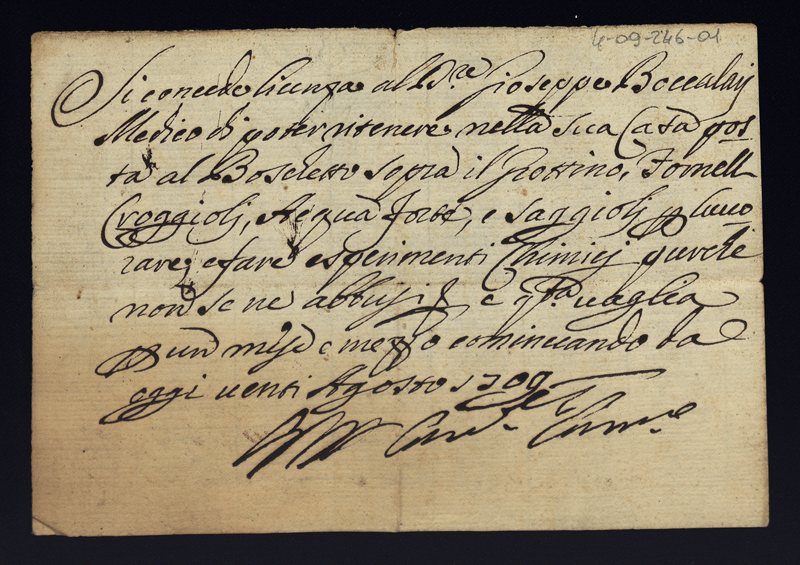 4-09-246-01
Si concede licenza al D.re Gioseppe Boccalarj
Medico di poter ritenere nella sua Casa pos
ta al Boschetto sopra il Grottino, Fornelli
Croggiolj, Acqua forte, e saggiolj p lavo
rare, e fare esperimenti Chimicj purche
non se ne abbusi, e q.ta vaglia
p un mese e mezzo cominciando da
oggi venti Agosto 1709
Card. Cam.o